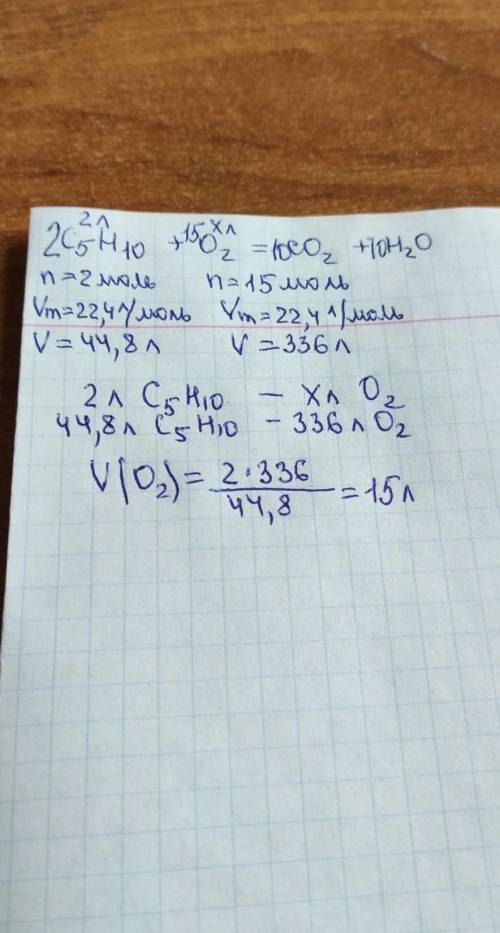 2л хл
2C₅H₁₀ + 15O₂ = 10CO₂ + 10H₂O
n = 2 моль n = 15 моль
Vm = 22,4 л/моль Vm = 22,4 л/моль
V = 44,8 л V = 336 л
2 л C₅H₁₀ — хл O₂
44,8 л C₅H₁₀ – 336 л O₂
V(O₂) = 2·336 / 44,8 = 15 л